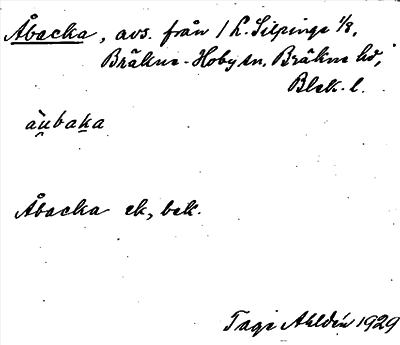 Åbacka, avs. från 1 L. Silpinge 1/8,
Bräkne-Hoby sn, Bräkne hd,
Blek. l.
àu̯baka
Åbacka ek, bek.
Tage Ahldén 1929